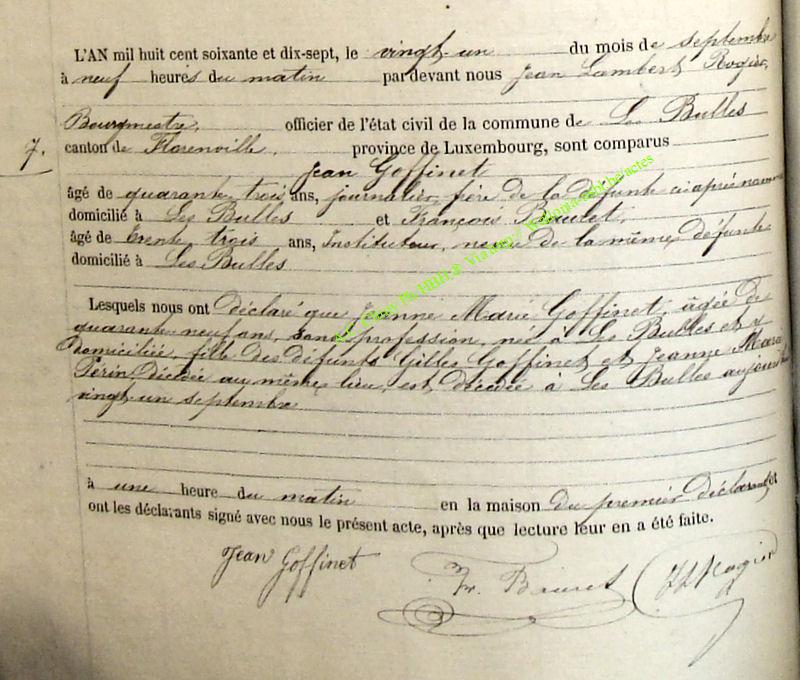 L'AN mil huit cent soixante et dix-sept, le vingt-un du mois de septembre
à neuf heures du matin par devant nous Jean Lambert Rogier,
Bourgmestre, officier de l'état civil de la commune de Les Bulles
7. canton de Florenville, province de Luxembourg, sont comparus
Jean Goffinet
âgé de quarante trois ans, journalier, frère de la défunte ci après nommée
domicilié à Les Bulles et François
âgé de trente trois ans, Instituteur, neveu de la même défunte
domicilié à Les Bulles
Lesquels nous ont déclaré que Jeanne Marie Goffinet, âgée de
quarante neuf ans, sans profession, née à Les Bulles et y
domiciliée, fille des défunts Gilles Goffinet et Jeanne Marie
au même lieu, est décédée à Les Bulles aujourd'hui
vingt un septembre
à une heure du matin en la maison du premier déclarant et
ont les déclarants signé avec nous le présent acte, après que lecture leur en a été faite.
Jean Goffinet Fr. JLRogier